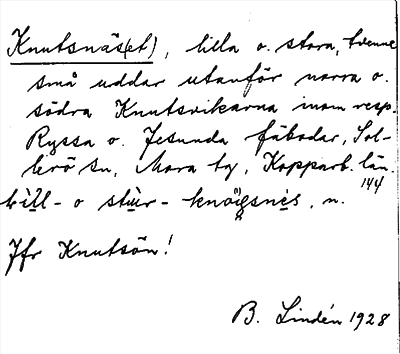 Knutsnäs(et), lilla o. stora, tvenne
små uddar utanför norra o.
södra Knutsvikarna inom resp.
Ryssa o. Jesunda fäbodar, Sol-
lerö sn, Mora tg, Kopparb. län.
144
o n.
Jfr Knutsön!
B. Lindén 1928